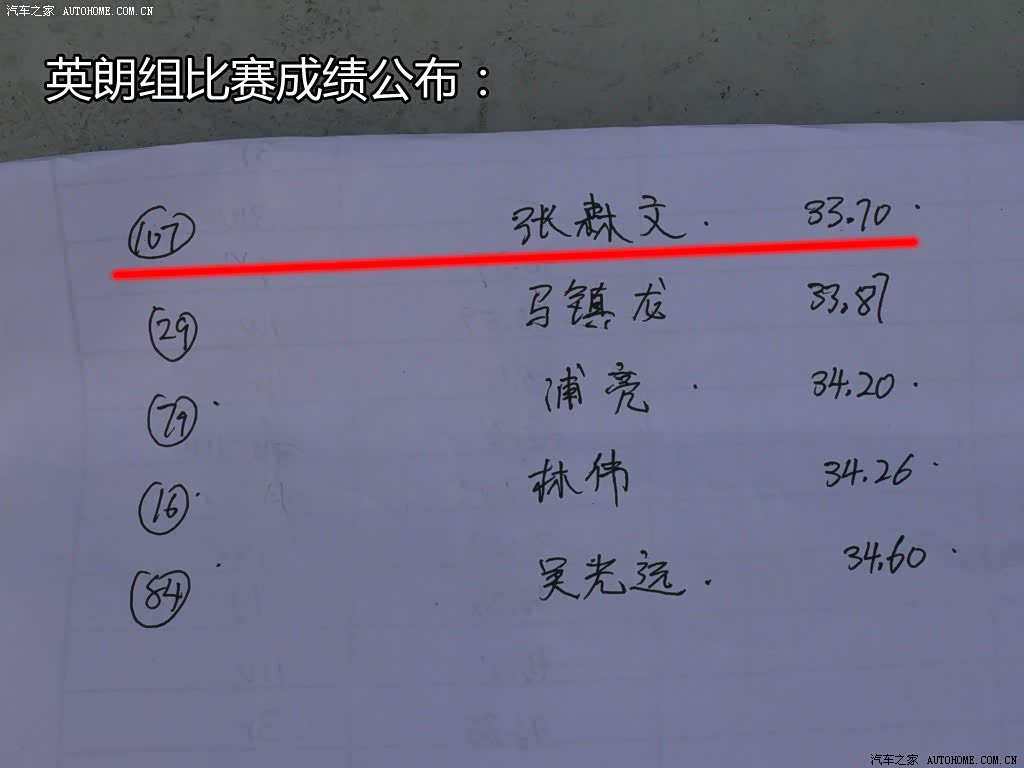 汽车之家 AUTOHOME.COM.CN
英朗组比赛成绩公布：
107 张森文. 33.70
29 马镇龙 33.87
79 浦亮 34.20
16 林伟 34.26
84 吴光远. 34.60
汽车之家 AUTOHOME.COM.CN